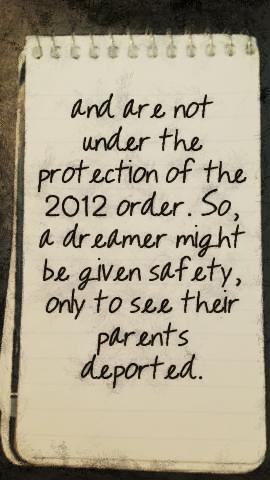 and are not
under the
protection of the
2012 order. So,
a dreamer might
be given safety,
only to see their
parents
deported.